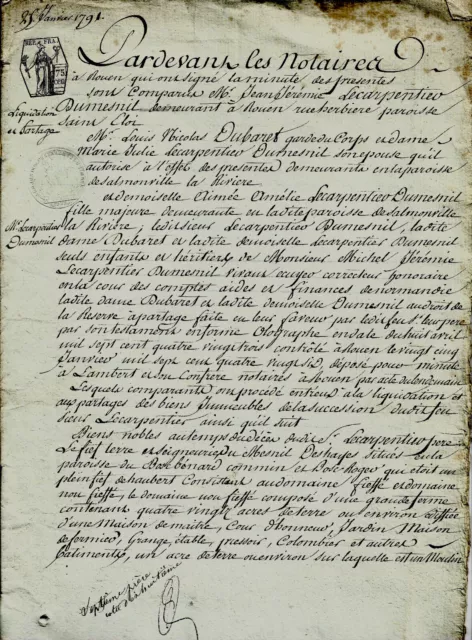 25 Janvier 1791.
REP. FRA.
75
CEN.
Pardevant les Notaires
à Rouen qui ont signé la minute des presentes
sont Comparus Mr. Jean Jérémie Lecarpentier
Dumesnil demeurant à Rouen rue herbiere paroisse
Saint Eloi
Liquidation
et Partage
Mr. Louis Nicolas Dubaret garde du Corps et dame
Marie Julie Lecarpentier Dumesnil son epouse qu'il
autorise à l'effet des presentes demeurants en la paroisse
de salmonville la Riviere
et demoiselle Aimée Amélie Lecarpentier Dumesnil
fille majeure demeurante en ladite paroisse de salmonville
Mr. Lecarpentier
Dumesnil
la Riviere; ledit sieur Lecarpentier Dumesnil, ladite
dame Dubaret et ladite demoiselle Lecarpentier Dumesnil
seuls enfants et héritiers de Monsieur Michel Jérémie
Lecarpentier Dumesnil vivant ecuyer correcteur honoraire
en la cour des comptes aides et finances de normandie
ladite dame Dubaret et ladite demoiselle Dumesnil au droit de
la Reserve à partage faite en leur faveur par ledit feu Sr. leur pere
par son testament en forme Olographe en date du huit avril
mil sept cent quatre vingt trois contrôlé à Rouen le vingt cinq
Janvier mil sept cent quatre vingt six, déposé pour minute
à Lambert et son Confrere notaires à Rouen par acte du lendemain
Lesquels comparants ont procédé entre eux à la liquidation et
aux partages des biens Immeubles de la succession dudit feu
sieur Lecarpentier ainsi qu'il suit
Biens nobles au temps du décès dudit Sr. Lecarpentier pere
Le fief terre et seigneurie du Mesnil Deshayes situés en la
paroisse du Bosc bénard commin et Bosc Roger qui étoit un
plein fief de haubert Consistant au domaine fieffé et domaine
non fieffé, le domaine non fieffé composé d'une grande ferme
contenant quatre vingt acres de terre ou environ édifiée
d'une Maison de maitre, Cour d'honneur, Jardin Maison
de fermier, Grange, étable, pressoir, Colombier et autres
batiments, un acre de terre ou environ sur laquelle est un Moulin